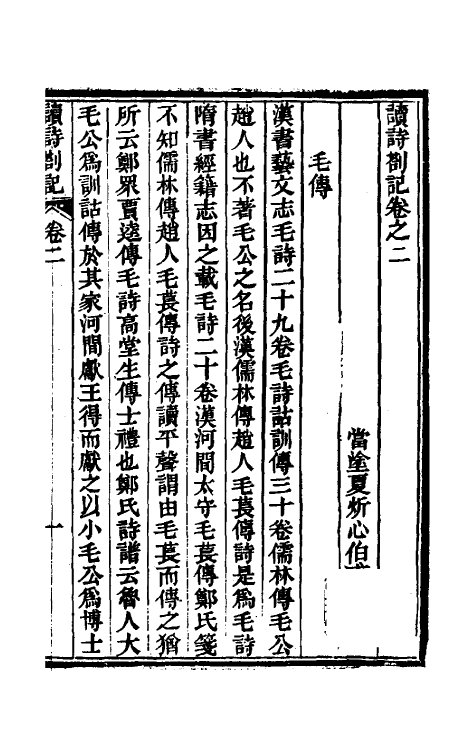 讀詩劄記卷之二
當塗夏炘心伯
毛傳
漢書藝文志毛詩二十九卷毛詩詁訓傳三十卷儒林傳毛公
趙人也不著毛公之名後漢儒林傳趙人毛萇傳詩是爲毛詩
隋書經籍志因之載毛詩二十卷漢河間太守毛萇傳鄭氏箋
不知儒林傳趙人毛萇傳詩之傳讀平聲謂由毛萇而傳之猶
所云鄭眾賈逵傳毛詩高堂生傳士禮也鄭氏詩譜云魯人大
毛公爲訓詁傳於其家河間獻王得而獻之以小毛公爲博士
讀詩劄記
卷二
一